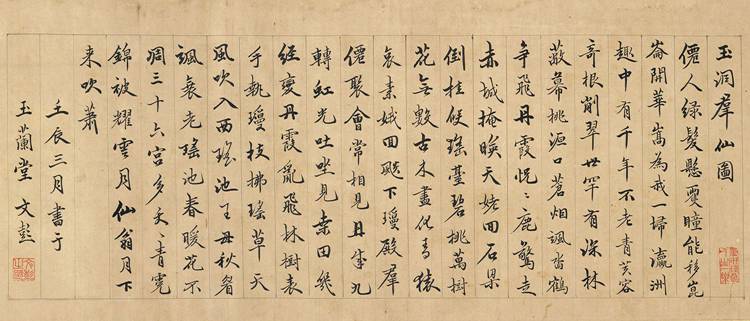 玉洞羣仙圖
僊人綠髮懸雙瞳能移崑
崙開華嵩為戒一掃瀛洲
趣中有千年不老青芙容
奇根削翠世罕有深林
蔽幕桃源口蒼烟颯沓鶴
爭飛丹霞恍〻鹿驚走
赤城掩暎天姥回石梁
倒挂候瑤臺碧桃萬樹
花無數古木盡化青猿
哀素娥回颷下瓊殿羣
僊聚會常相見丹成九
轉虹光吐坐見桑田幾
經變丹霞亂飛林樹表
手執瓊枝拂瑤草天
風吹入西瑤池王母秋眉
颯裊老瑤池春暖花不
凋三十六宮多〻青霓
錦被耀雲月仙翁月下
来吹蕭
壬辰三月書于
玉蘭堂文彭